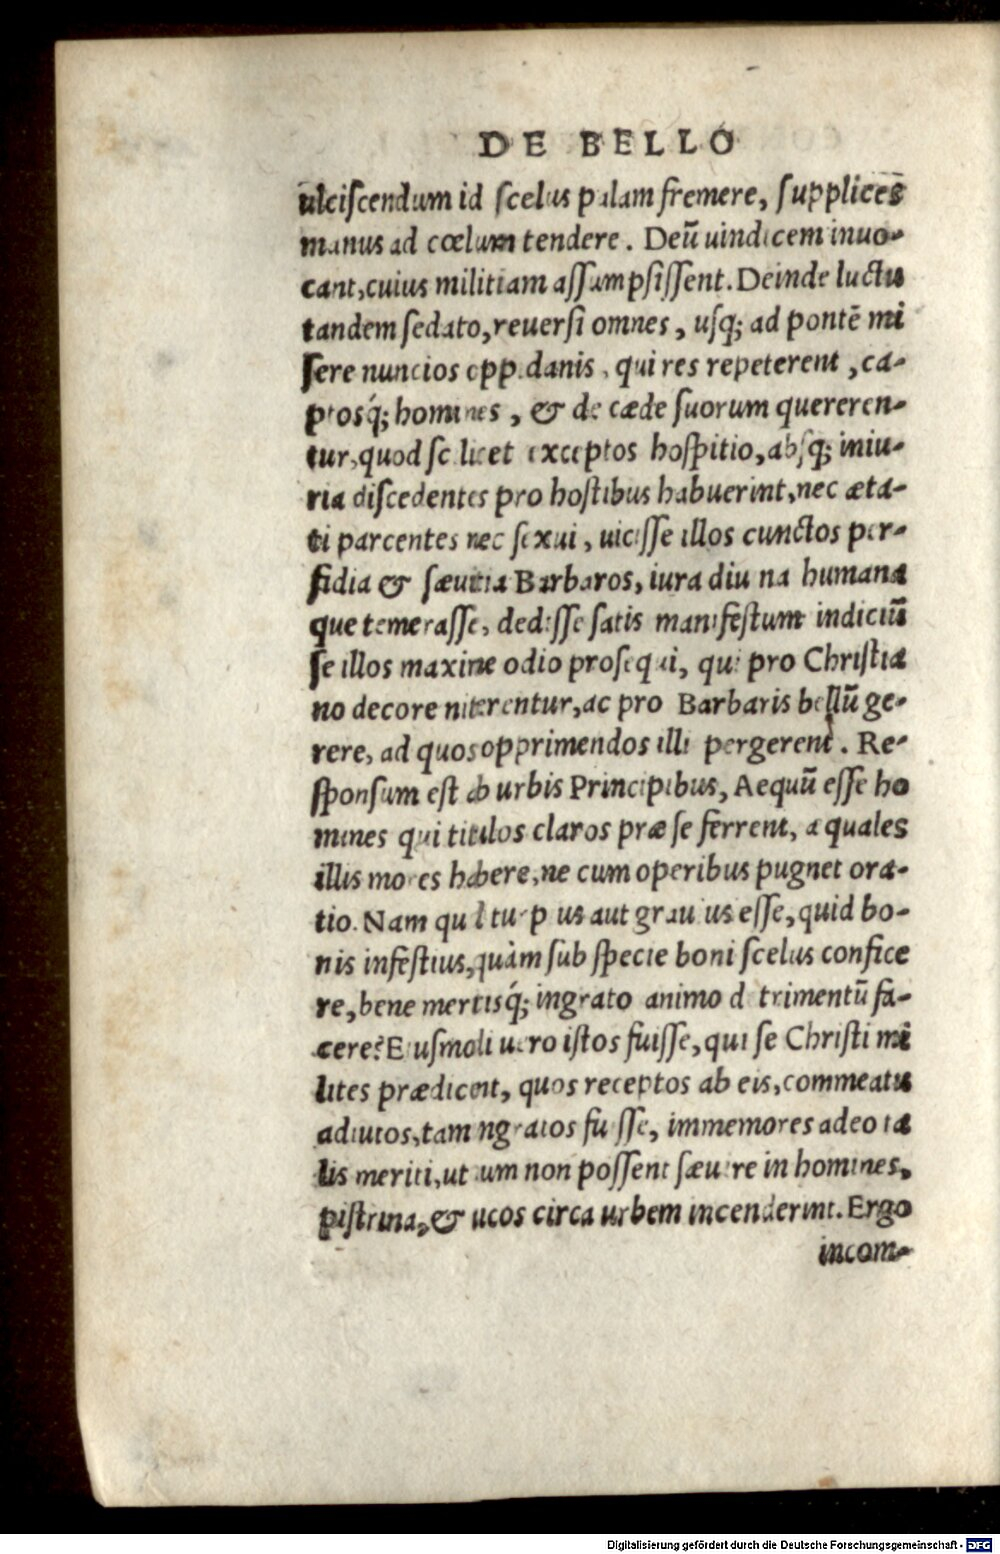 DE BELLO
ulciscendum id scelus palam fremere, supplices
manus ad cœlum tendere. Deū uindicem inuo-
cant, cuius militiam assumpsissent. Deinde luctu
tandem sedato, reuersi omnes, usq; ad pontē mi
sere nuncios oppidanis, qui res repeterent, ca-
ptosq́; homines, & de cæde suorum quereren-
tur, quod scilicet exceptos hospitio, absq; iniu-
ria discedentes pro hostibus habuerint, nec æta-
ti parcentes nec sexui, uicisse illos cunctos per-
fidia & sæuitia Barbaros, iura diuina humana
que temerasse, dedisse satis manifestum indiciū
se illos maxine odio prosequi, qui pro Christia
no decore niterentur, ac pro Barbaris bellū ge-
rere, ad quos opprimendos illi pergerent. Re-
sponsum est ab urbis Principibus, Aequū esse ho
mines qui titulos claros præ se ferrent, aquales
illis mores habere, ne cum operibus pugnet ora-
tio. Nam quid turpius aut grauius esse, quid bo-
nis infestius, quàm sub specie boni scelus confice
re, bene meritisq́; ingrato animo detrimentū fa-
cere? Eiusmodi uero istos fuisse, qui se Christi mi
lites prædicent, quos receptos ab eis, commeatu
adiutos, tam ingratos fuisse, immemores adeo ta
lis meriti, ut cum non possent sæuire in homines,
pistrina, & uicos circa urbem incenderint. Ergo
incom-
Digitalisierung gefördert durch die Deutsche Forschungsgemeinschaft - DFG